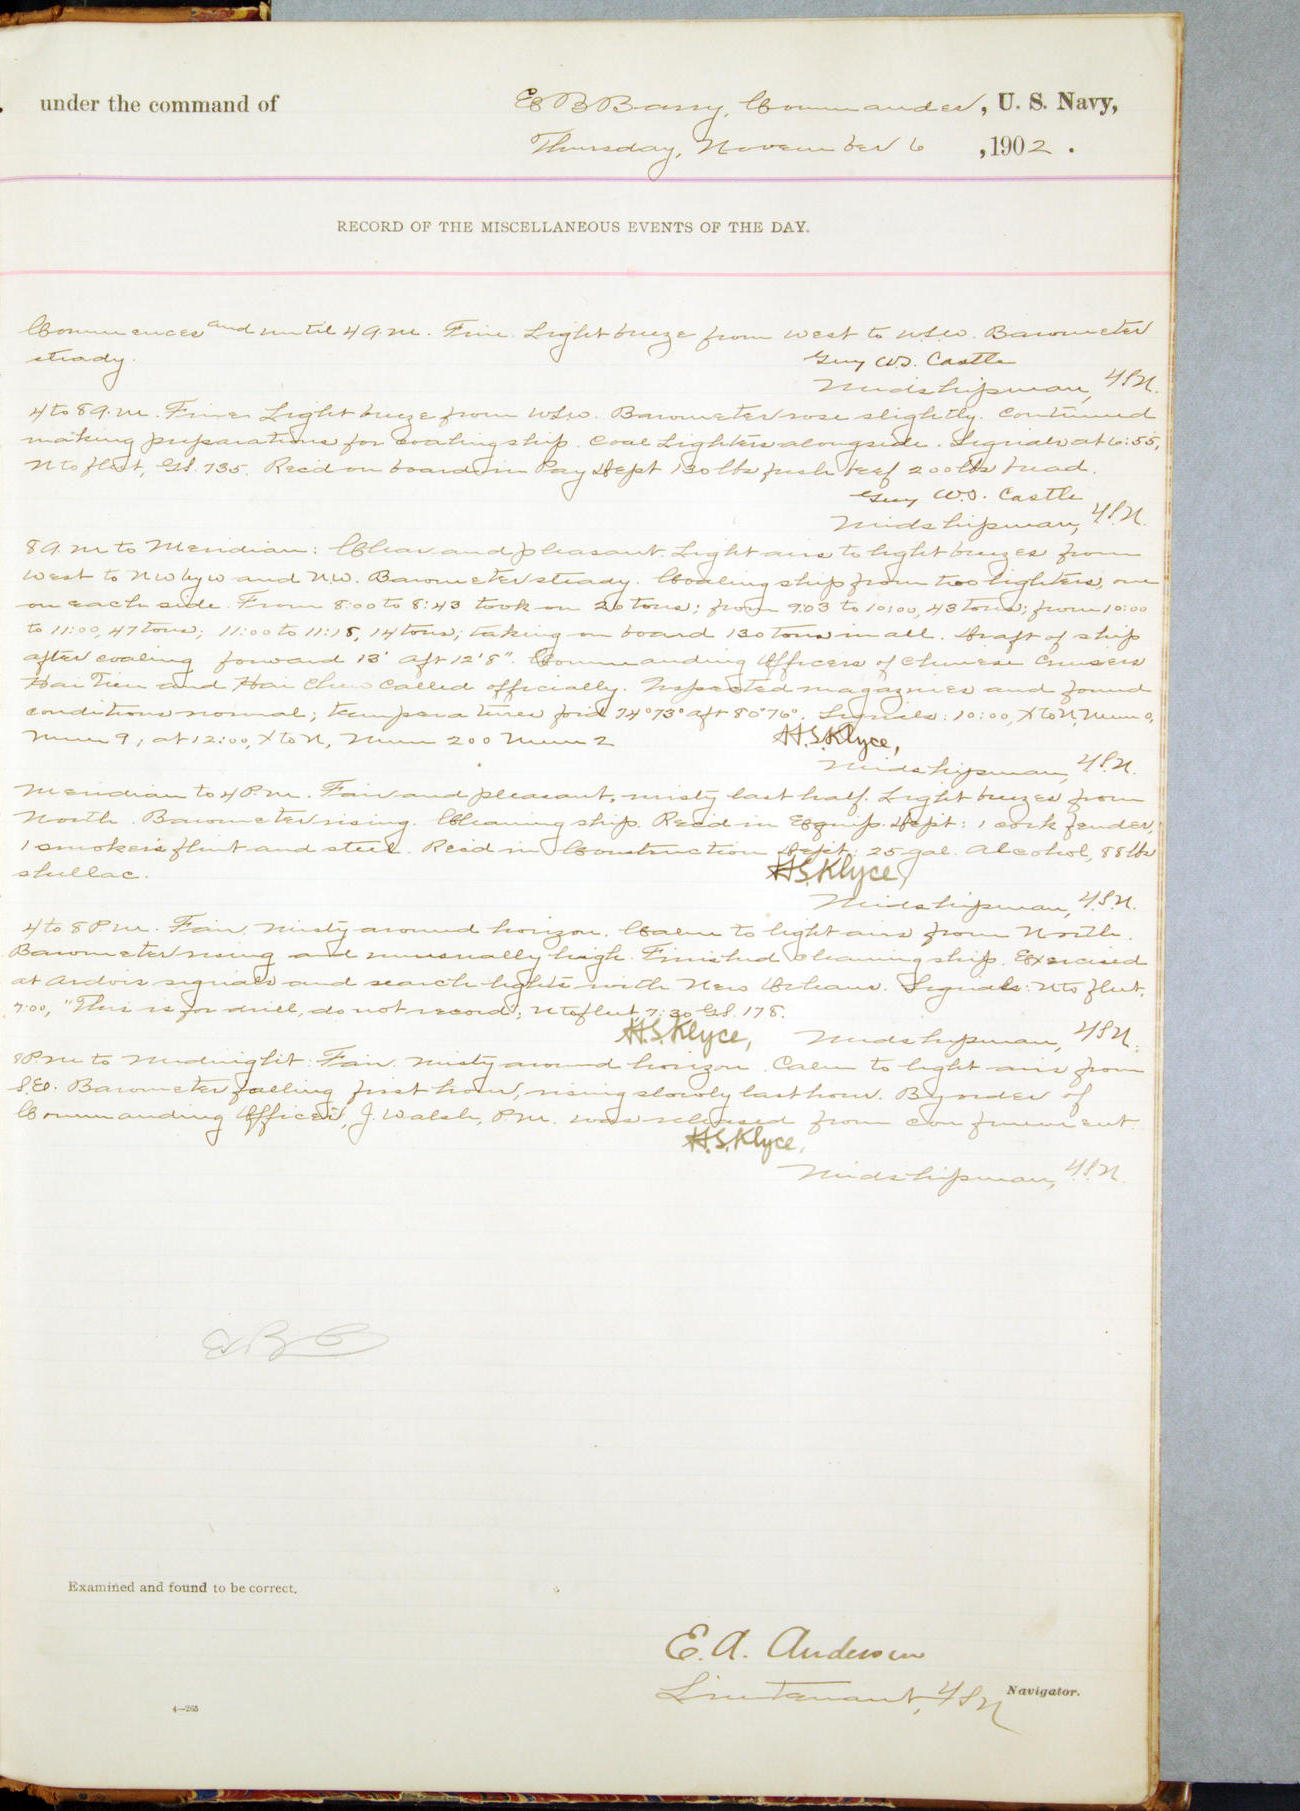 under the command of E B Barry, Commander, U. S. Navy,
Thursday, November 6, 1902.
RECORD OF THE MISCELLANEOUS EVENTS OF THE DAY.
Commences and until 4 a.m. Fine. Light breeze from West to W.S.W. Barometer
steady.
Guy W.S. Castle
Midshipman, U.S.N.
4 to 8 a.m. Fine. Light breeze from W.S.W. Barometer rose slightly. Continued
making preparations for coaling ship. Coal Lighters alongside. Signals at 6:55,
N to fleet, G.S. 735. Rec'd on board in Pay Dept 130 lbs fresh beef 200 lbs bread.
Guy W.S. Castle
Midshipman, U.S.N.
8 a.m to Meridian: Clear and pleasant. Light airs to light breezes from
West to NW by W and NW. Barometer steady. Coaling ship from two lighters, one
on each side. From 8:00 to 8:43 took on 26 tons; from 9:03 to 10:00, 43 tons; from 10:00
to 11:00, 47 tons; 11:00 to 11:18, 14 tons; taking on board 130 tons in all. Draft of ship
after coaling forward 13' aft 12'8". Commanding Officers of Chinese Cruisers
Hai Tien and Hai Chew called officially. Inspected magazines and found
conditions normal; temperatures for'd 74° 73° aft 80° 76°. Signals: 10:00, X to N, Num 0,
Num 9; at 12:00, X to N, Num 200 Num 2
H.S. Klyce,
Midshipman, U.S.N.
Meridian to 4 P.m. Fair and pleasant, misty last half. Light breezes from
North. Barometer rising. Cleaning ship. Rec'd in Equip. Dept: 1 cork fender,
1 smokers flint and steel. Rec'd in Construction Dept: 25 gal. Alcohol, 88 lbs
shellac.
H.S. Klyce,
Midshipman, U.S.N.
4 to 8 P.m. Fair, misty around horizon. Calm to light airs from North.
Barometer rising and unusually high. Finished cleaning ship. Exercised
at ardois signals and search lights with New Orleans. Signals: N to fleet,
7:00, "This is for drill, do not record"; N to fleet 7:30 G.S. 178.
H.S. Klyce, Midshipman, U.S.N.
8 P.M to Midnight: Fair. Misty around horizon. Calm to light airs from
S.E. Barometer falling first hour, rising slowly last hour. By order of
Commanding Officer, J. Walsh, P.M. was released from confinement.
H.S. Klyce,
Midshipman, U.S.N.
Examined and found to be correct.
E. A. Anderson
Lieutenant, U S N Navigator.
4—265